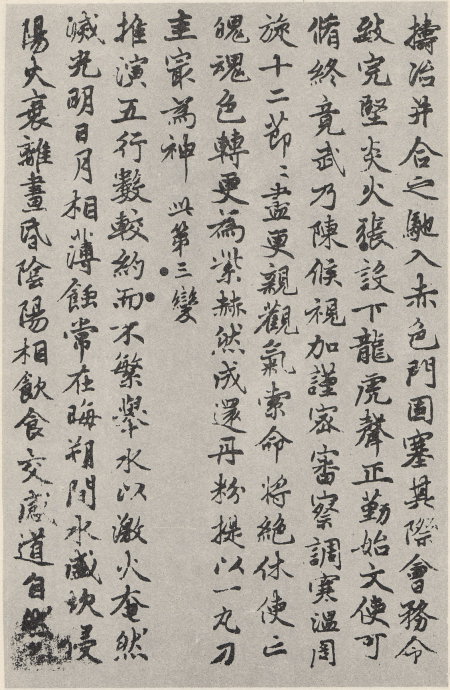 擣冶并合之馳入赤色門固塞其際會務令
致完堅炎火張設下龍虎聲正勤始文使可
脩終竟武乃陳候視加謹密審察調寒溫周
旋十二節〻盡更親觀氣索命將絕休使亡
魄魂色轉更為紫赫然成還丹粉提以一丸刀
圭寂為神 此第三變
推演五行數較約而不繁舉水以激火奄然
滅光明日月相薄蝕常在晦朔間水盛坎侵
陽火衰離晝昏陰陽相飲食交感道自然